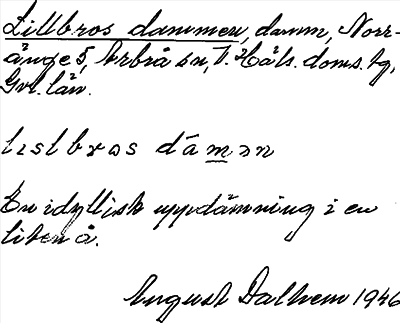 Lillbros dammen, damm, Norr-
änge 5, Arbrå sn, V. Häls. doms. hg,
Gvl. län.
lislbros dámən
En idyllisk uppdämning i en
liten å.
August Dalhem 1946